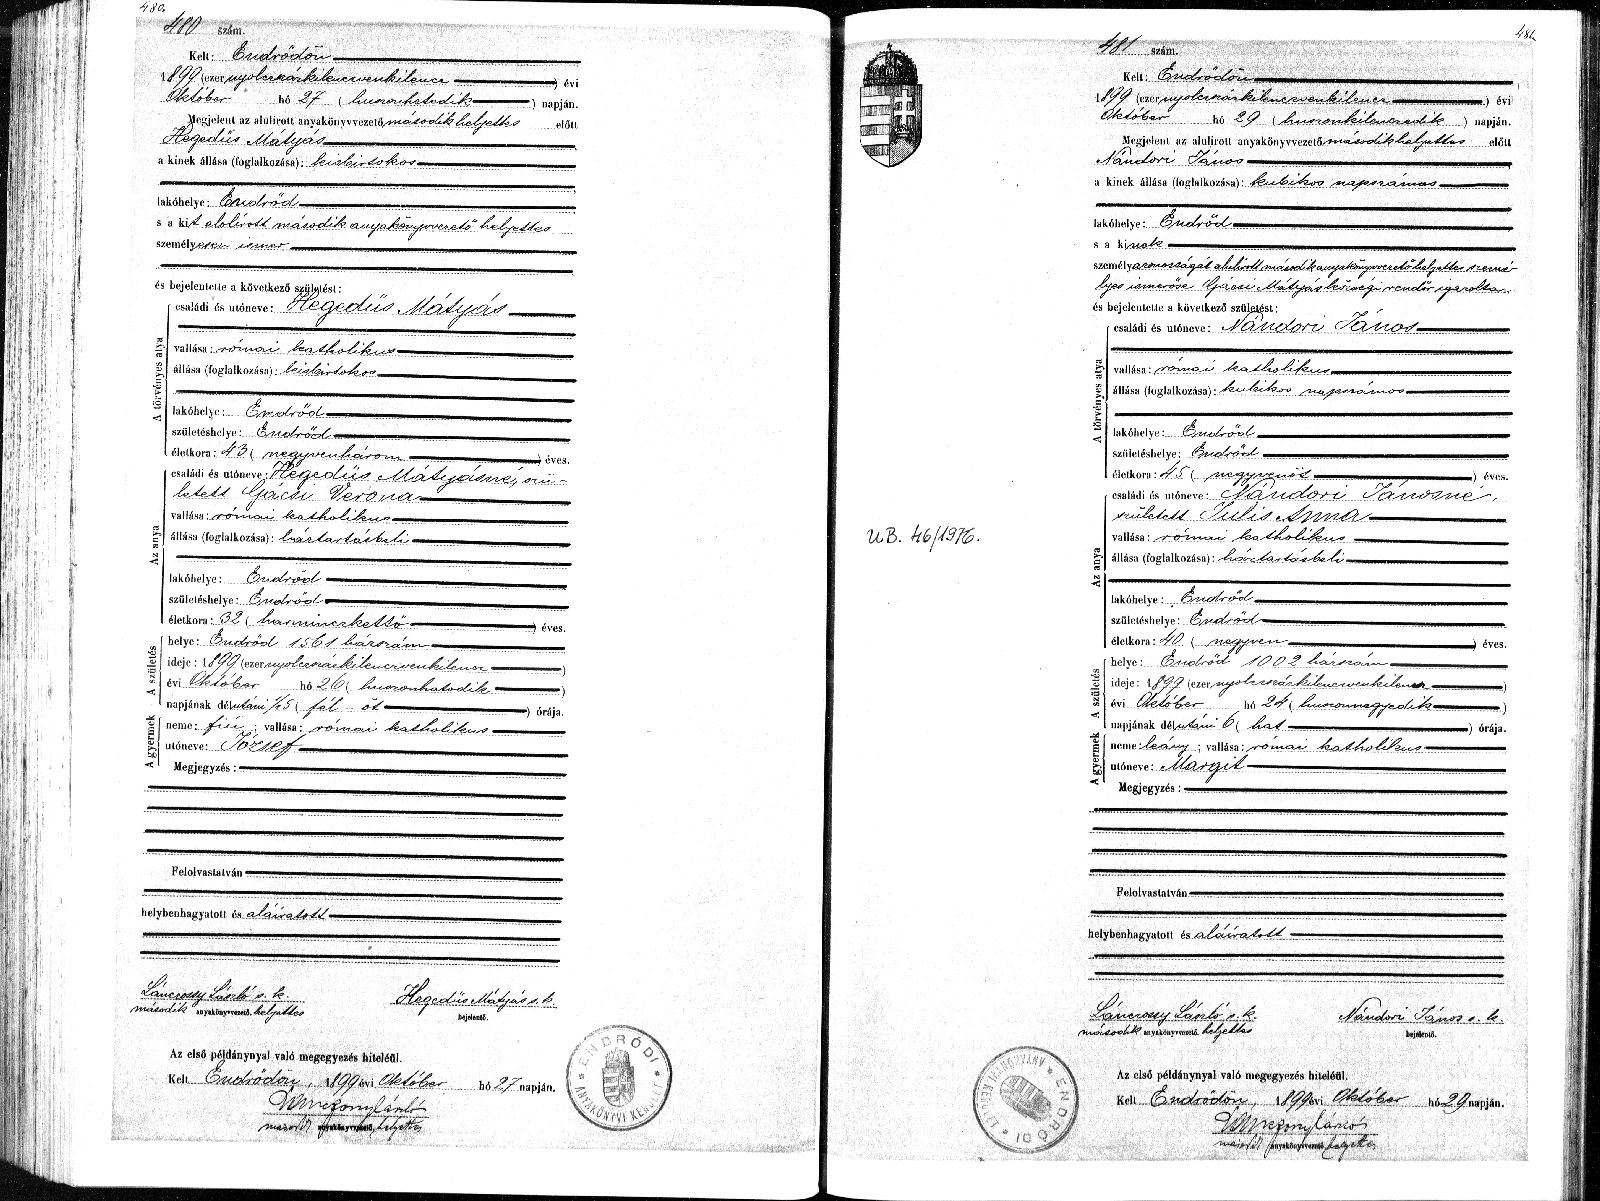 480.
480 szám.
Kelt: Endrődön
1899 (ezernyolczszázkilenczvenkilencz) évi
Október hó 27 (huszonhatodik) napján.
Megjelent az alulirott anyakönyvvezető második helyettes előtt
Hegedüs Mátyás
a kinek állása (foglalkozása): kisbirtokos
lakóhelye: Endrőd
s a kit alolírott második anyakönyvvezető helyettes
személyesen ismer
és bejelentette a következő születést:
A törvényes atya
családi és utóneve: Hegedüs Mátyás
vallása: római katholikus
állása (foglalkozása): kisbirtokos
lakóhelye: Endrőd
születéshelye: Endrőd
életkora: 43 (negyvenhárom) éves.
Az anya
családi és utóneve: Hegedüs Mátyásné, szü-
letett Gácsi Verona
vallása: római katholikus
állása (foglalkozása): háztartásbeli
lakóhelye: Endrőd
születéshelye: Endrőd
életkora: 32 (harminczkettő) éves.
A születés
helye: Endrőd 1561 házszám
ideje: 1899 (ezernyolczszázkilenczvenkilencz)
évi Október hó 26 (huszonhatodik)
napjának délutáni 1/2 5 (fél öt) órája.
A gyermek
neme: fiú; vallása: római katholikus
utóneve: József
Megjegyzés:
Felolvastatván
helybenhagyatott és aláiratott
Lánczossy László s. k. Hegedüs Mátyás s. k.
második anyakönyvvezető. helyettes bejelentő.
Az első példánynyal való megegyezés hiteléül.
Kelt Endrődön, 1899 évi Október hó 27 napján.
anyakönyvvezető. helyettes
ENDRŐDI ANYAKÖNYVI KERÜLET
481.
481 szám.
Kelt: Endrődön
1899 (ezernyolczszázkilenczvenkilencz) évi
Október hó 29 (huszonkilenczedik) napján.
Megjelent az alulirott anyakönyvvezető második helyettes előtt
Nándori János
a kinek állása (foglalkozása): kubikos napszámos
lakóhelye: Endrőd
s a kinek
személyazonosságát alulirott második anyakönyvvezető helyettes szemé-
lyes ismerőse Gácsi Mátyás községi rendőr igazolta
és bejelentette a következő születést:
A törvényes atya
családi és utóneve: Nándori János
vallása: római katholikus
állása (foglalkozása): kubikos napszámos
lakóhelye: Endrőd
születéshelye: Endrőd
életkora: 45 (negyvenöt) éves.
Az anya
családi és utóneve: Nándori Jánosné,
született Julis Anna
vallása: római katholikus
állása (foglalkozása): háztartásbeli
lakóhelye: Endrőd
születéshelye: Endrőd
életkora: 40 (negyven) éves.
A születés
helye: Endrőd 1002 házszám
ideje: 1899 (ezernyolczszázkilenczvenkilencz)
évi Október hó 24 (huszonnegyedik)
napjának délutáni 6 (hat) órája.
A gyermek
neme: leány; vallása: római katholikus
utóneve: Margit
Megjegyzés:
Felolvastatván
helybenhagyatott és aláiratott
Lánczossy László s. k. Nándori János s. k.
második anyakönyvvezető. helyettes bejelentő.
Az első példánynyal való megegyezés hiteléül.
Kelt Endrődön, 1899 évi Október hó 29 napján.
anyakönyvvezető. helyettes
ENDRŐDI ANYAKÖNYVI KERÜLET
UB. 46/1976.